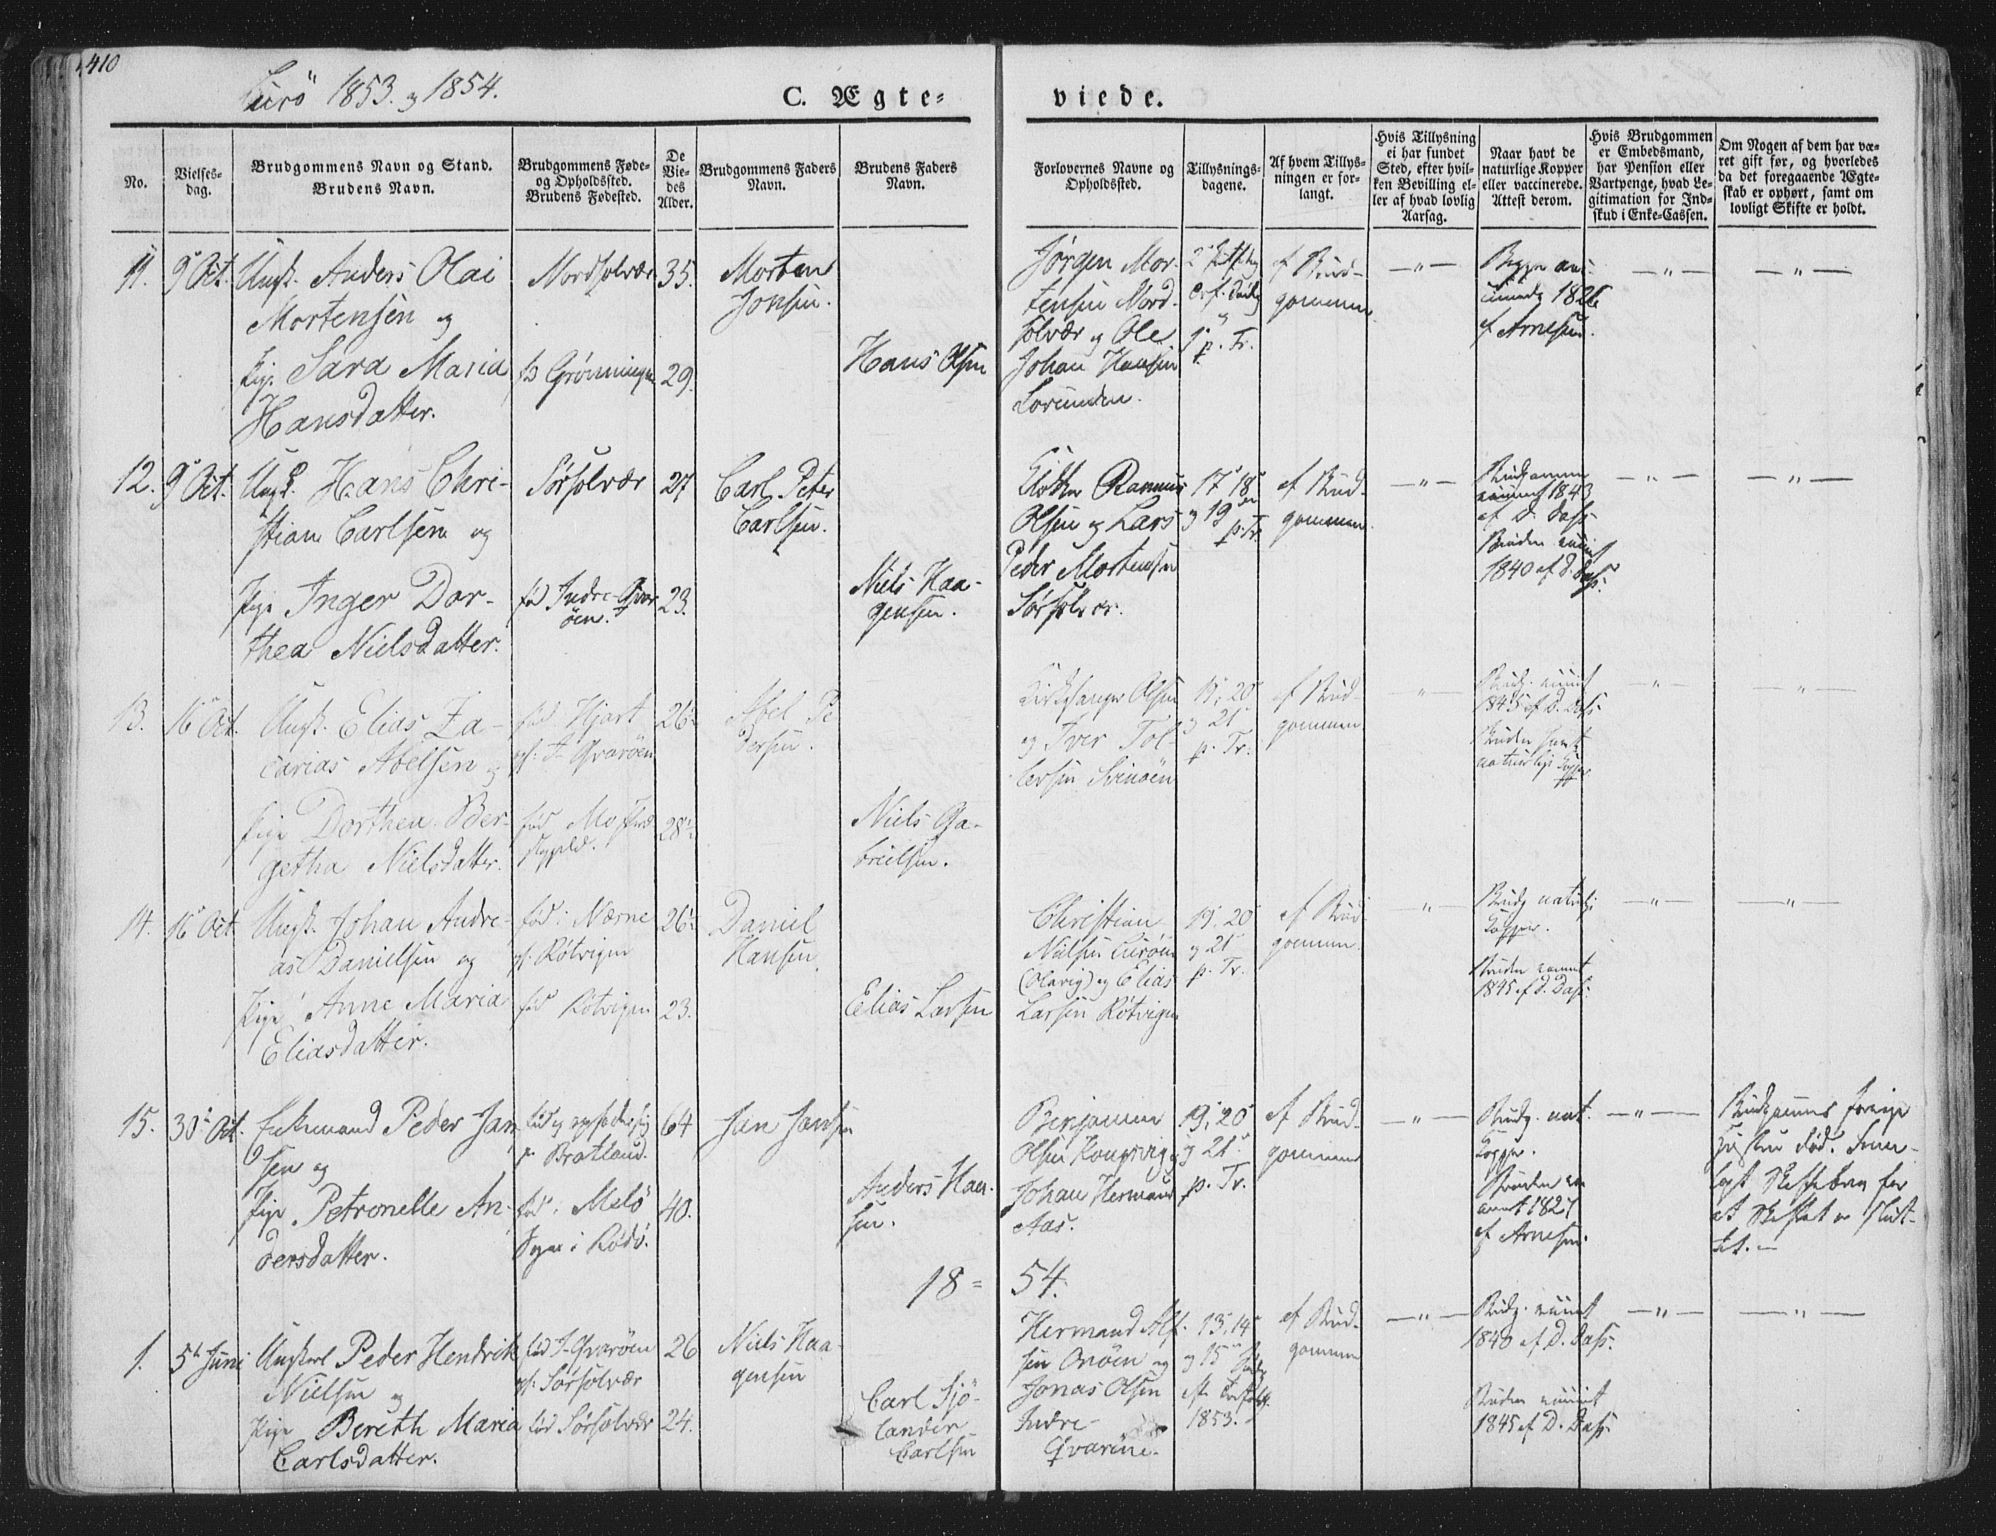 410
Lurö 1853 og 1854.
C. Ægte-
viede.
No.
Vielses-
dag.
Brudgommens Navn og Stand.
Brudens Navn.
Brudgommens Føde-
og Opholdssted.
Brudens Fødested.
De
Vie-
des
Alder.
Brudgommens Faders
Navn.
Brudens Faders
Navn.
Forlovernes Navne og
Opholdssted.
Tillysnings-
dagene.
Af hvem Tillys-
ningen er for-
langt.
Hvis Tillysning
ei har fundet
Sted, efter hvil-
ken Bevilling el-
ler af hvad lovlig
Aarsag.
Naar havt de
naturlige Kopper
eller vaccinerede.
Attest derom.
Hvis Brudgommen
er Embedsmand,
har Pension eller
Vartpenge, hvad Le-
gitimation for Ind-
skud i Enke-Cassen.
Om Nogen af dem har væ-
ret gift før, og hvorledes
da det foregaaende Ægte-
skab er ophørt, samt om
lovligt Skifte er holdt.
11.
9 Oct.
Ungk. Anders Olai
Mortensen og
Pige Sara Maria
Hansdatter.
Nordsolvær
Grønningen
35.
29.
Morten
Jonsen.
Hans Olsen
Jørgen Mor-
tensen Nord-
solvær og Ole
Johan Hansen
Lorunden.
p. Tr.
af Brud-
gommen
— " —
Begge
1826
af Arnesen.
— " —
— " —
12.
9 Oct.
Ungk. Hans Chri-
stian Carlsen og
Pige Inger Dor-
thea Nielsdatter.
Sørsolvær
fød Indre-Qvar
öen.
27
23.
Carl Peter
Carlsen.
Niels Haa-
gensen.
Rasmus
Olsen og Lars
Peder Mortensen
Sørsolvær.
17 18
og 19
p. Tr.
af Brud-
gommen.
— " —
1843
af D. Dass
Bruden
1840 af D. Dass.
— " —
— " —
13.
16 Oct.
Ungk. Elias Za-
carias Abelsen og
Pige Dorthea Ber-
getha Nielsdatter.
fød Hjart
I Qvarøen
fød
26
28
Abel Pe
dersen.
Niels Ga-
brielsen.
Kirkesanger Olsen
og Iver Tol-
lersen
19, 20
og 21
p. Tr.
af Brud
gommen
— " —
Brudg.
1845 af D. Dass
Bruden havt
naturlige Kopper
— " —
— " —
14.
16 Oct.
Ungk. Johan Andre-
as Danielsen og
Pige Anne Maria
Eliasdatter.
fød i Nærne
Røtvigen
fød Røtvigen
26
23.
Daniel
Hansen
Elias Larsen
Christian
Nielsen Lurøen
(Olavig) og Elias
Larsen Røtvigen
19, 20
og 21
p. Tr.
af Brud
gommen.
— " —
Brudg naturlige
Kopper.
Bruden
1845 af D. Dass.
— " —
— " —
15.
30 Oct.
Enkemand Peder Jan
sen og
Pige Petronelle An-
dersdatter.
Bratland.
fød i Melö
Sogn i Rödö.
64
40.
Jan Jansen
Anders Han-
sen.
Benjamin
Olsen Kongsvig og
Johan Hermand
Aas.
19, 20
og 21
p. Tr.
af Brud-
gommen
— " —
Brudg. nat.
Kopper.
Bruden
1827
af Arnesen.
— " —
Brudgommens forrige
Hustru død.
Skiftebrev for
at Skiftet er slut-
tet. —
18 = 54.
1.
5 Juni
Ungkarl Peder Hendrik
Nielsen og
Pige Bereth Maria
Carlsdatter.
fød I-Qvarøen
Sørsolvær
fød Sørsolvær
26
24.
Niels Haa-
gensen
Carl Sjö-
lander
Carlsen
Hermand Alf-
sen Onöen og
Jonas Olsen
Indre-
Qvaröne.
13, 14
og 15
1853.
af Brud-
gommen
— " —
Brudg.
1840 af D. Dass.
Bruden
1845 af D. Dass.
— " —
— " —